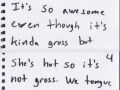 It's so awesome
even though it's
kinda gross but
She's hot so it's 4
not gross. We tongue